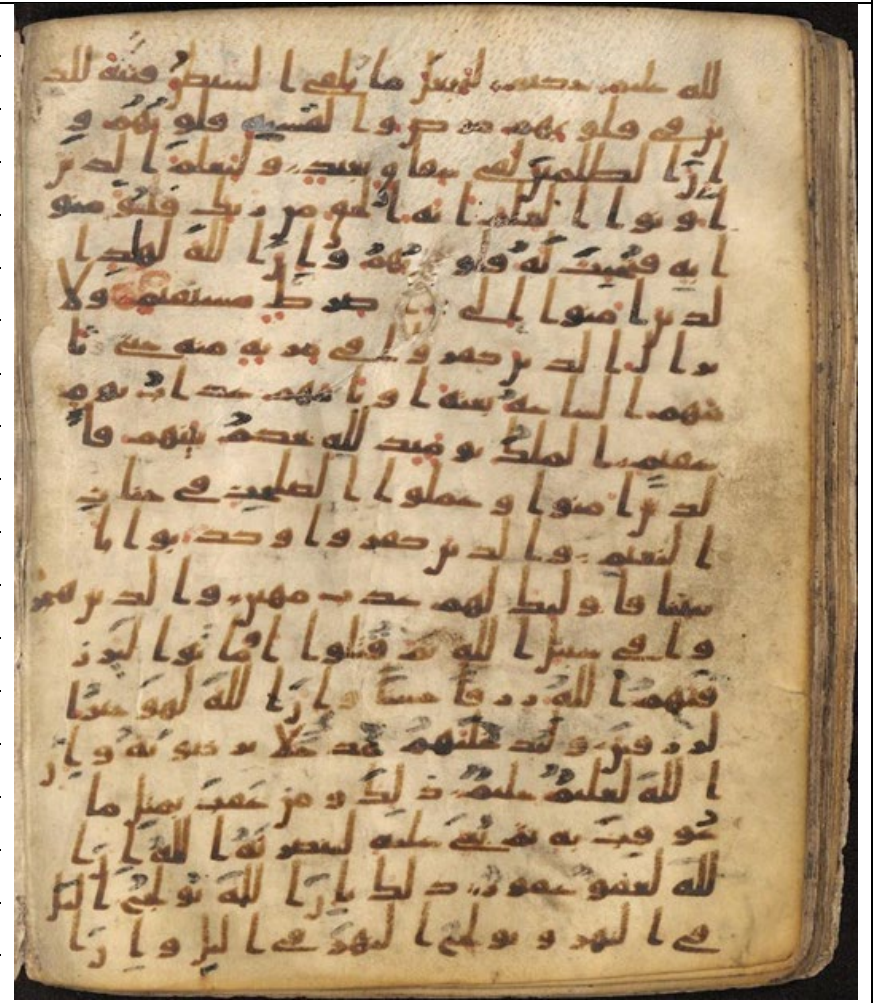 لله عليم حكيم ليجعل ما يلقي الشيطن فتنة للذ
ين في قلوبهم مرض والقسية قلوبهم و
ان الظلمين لفي شقاق بعيد وليعلم الذين
اوتوا العلم انه الحق من ربك فيؤمنو
ا به فتخبت له قلوبهم وان الله لهاد ا
لذين امنوا الى صرط مستقيم ولا
يزال الذين كفروا في مرية منه حتى تا
تيهم الساعة بغتة او ياتيهم عذاب يوم
عقيم الملك يومئذ لله يحكم بينهم فا
لذين امنوا وعملوا الصلحت في جنات
النعيم والذين كفروا وكذبوا با
يتنا فاوليك لهم عذب مهين والذين هجر
وا في سبيل الله ثم قتلوا او ماتوا ليرز
قنهم الله رزقا حسنا وان الله لهو خير ا
لرزقين وليدخلنهم مدخلا يرضونه وان
الله لعليم حليم ذلك ومن عقب بمثل ما
عوقب به ثم بغي عليه لينصرنه الله ان ا
لله لعفو غفور ذلك بان الله يولج اليل
في النهر ويولج النهر في اليل وان ا